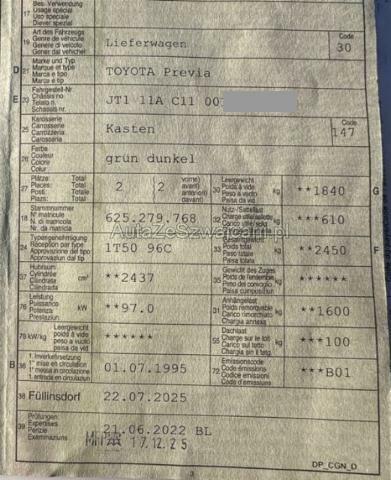 Bes. Verwendung
17 Usage spécial
Uso speciale
Diever spezial
Art des Fahrzeugs
19 Genre de véhicule
Genere di veicolo
Gener dal vehichel
Lieferwagen
Code
30
D 21 Marke und Typ
Marque et type
Marca e tipo
Marca e tip
TOYOTA Previa
E 23 Fahrgestell-Nr
Châssis no
Telaio n.
Schassis nr.
JT1 11A C11 00
25 Karosserie
Carosserie
Carrozzeria
Carossaria
Kasten
Code
147
26 Farbe
Couleur
Colore
Colur
grün dunkel
27 Plätze: Total
Places: Total
Posti: Totale
Plazs: Total
2 2
vorne)
avant)
anteriori)
davant)
30 Leergewicht
Poids à vide
Peso a vuoto
Paisa da vid
kg
**1840
G
18 Stammnummer
N° matricule
N. di matricola
Nr. da matricla
625.279.768
32 Nutz-/Sattellast
kg
***610
24 Typengenehmigung
Réception par type
Approvazione del tipo
Approvaziun dal tip
1T50 96C
33 Gesamtgewicht
Poids total
Peso totale
Paisa totala
kg
**2450
F
37 Hubraum
Cylindrée
Cilindrata
Cilindrada
cm³
**2437
35 Gewicht des Zuges
Poids de l'ensemble
Peso del convoglio
Paisa cumposiziun
kg
******
76 Leistung
Puissance
Potenza
Prestaziun
kW
**97.0
31 Anhängelast
Poids remorquable
Peso rimorchiabile
Chargia annexa
kg
**1600
78 kW/kg
Leergewicht
poids à vide
peso a vuoto
paisa da vid
******
55 Dachlast
Charge sur le toit
Carico sul tetto
Chargia sin il tetg
kg
***100
B 36 1. Inverkehrsetzung
1re mise en circulation
1a messa in circolazione
1. entrada en circulaziun
01.07.1995
72 Emissionscode
Code émissions
Codice emissioni
Code d'emissiuns
***B01
38 Füllinsdorf 22.07.2025
39 Prüfungen
Expertises
Perizie
Examinaziuns
21.06.2022 BL
MFP 17.12.25
3
DP_CGN_D
AutaZeSzwajcarii.pl